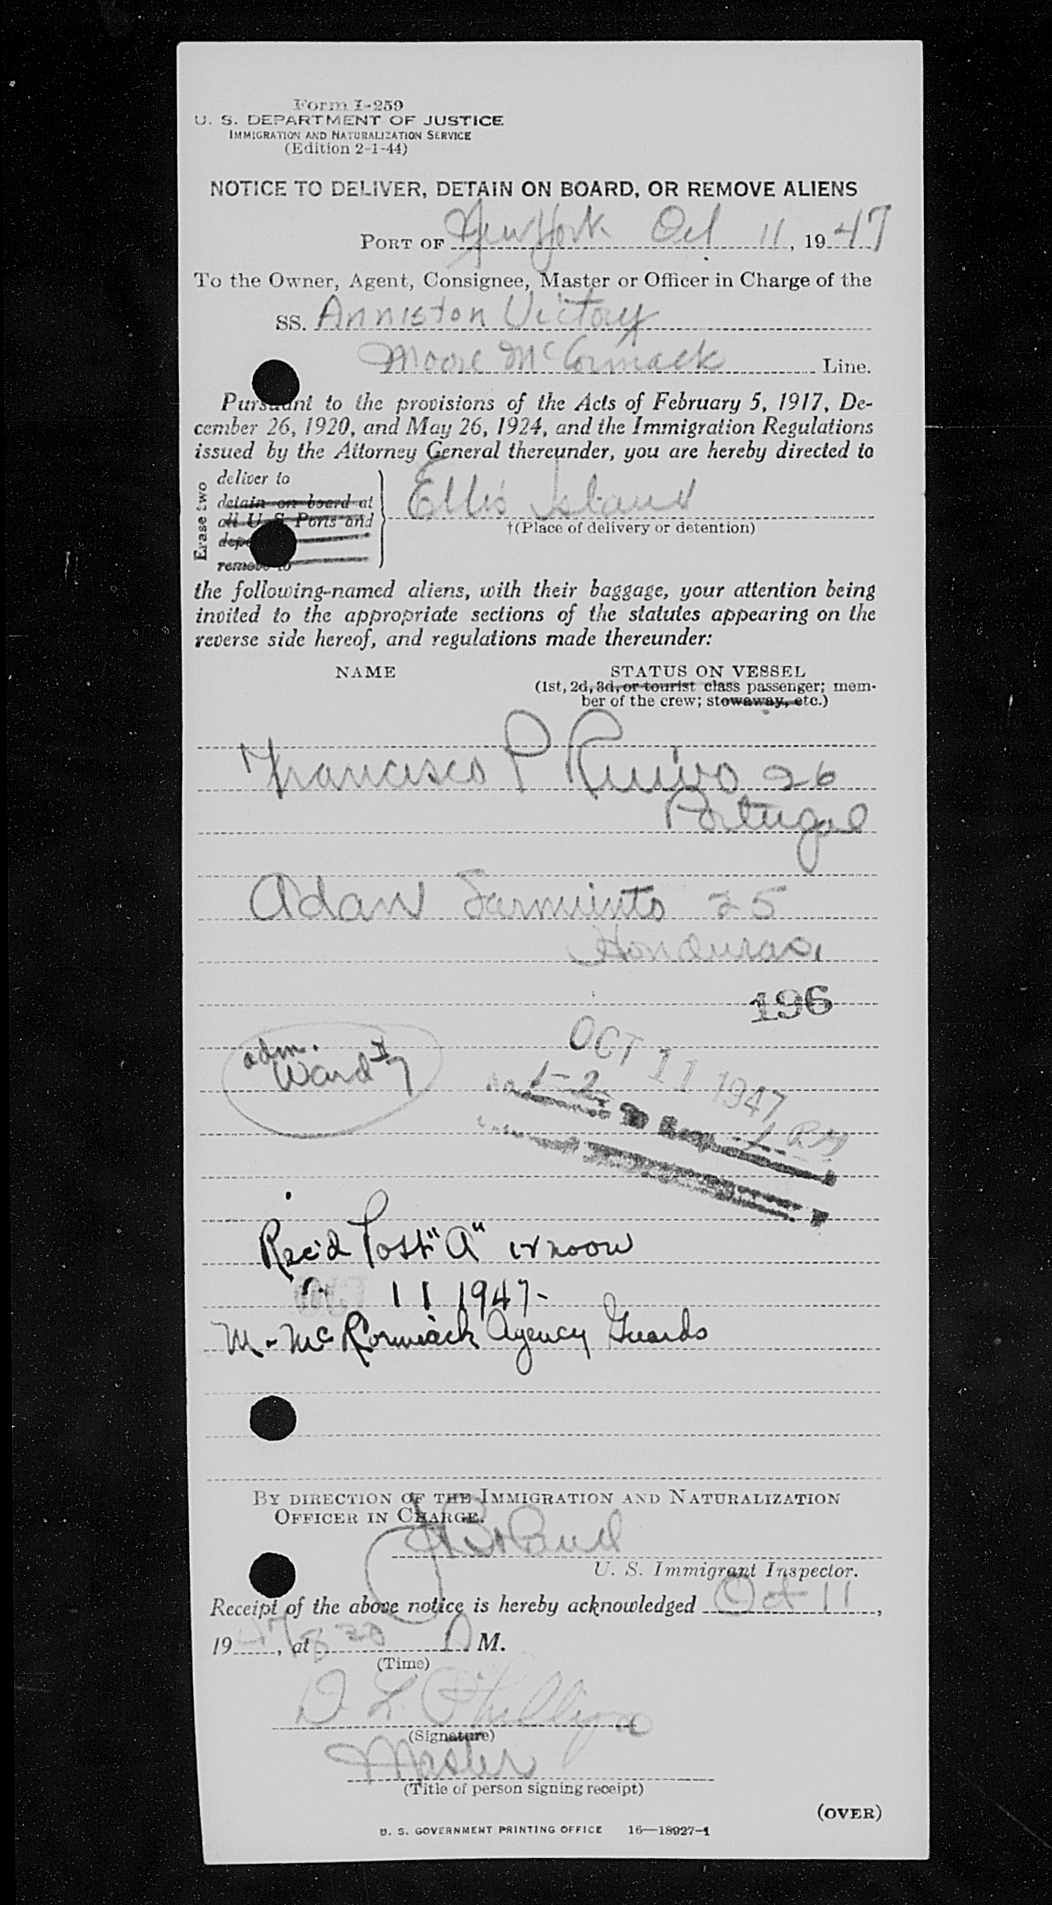 Form I-259
U. S. DEPARTMENT OF JUSTICE
IMMIGRATION AND NATURALIZATION SERVICE
(Edition 2-1-44)
NOTICE TO DELIVER, DETAIN ON BOARD, OR REMOVE ALIENS
PORT OF New York Oct 11, 1947
To the Owner, Agent, Consignee, Master or Officer in Charge of the
SS. Anniston Victory
Moore McCormack Line.
Pursuant to the provisions of the Acts of February 5, 1917, De-
cember 26, 1920, and May 26, 1924, and the Immigration Regulations
issued by the Attorney General thereunder, you are hereby directed to
Erase two
deliver to
detain on board at
all U S Ports and
remove to
Ellis Island
†(Place of delivery or detention)
the following-named aliens, with their baggage, your attention being
invited to the appropriate sections of the statutes appearing on the
reverse side hereof, and regulations made thereunder:
NAME STATUS ON VESSEL
(1st, 2d, 3d, or tourist class passenger; mem-
ber of the crew; stowaway, etc.)
Francisco P Ruivo 26
Portugal
Adan Sarmiento 25
Honduras
196
adm.
Ward 7
OCT 11 1947
1-2
Rec'd Post "A" 12 noon
11 1947-
M-McCormack Agency Guards
BY DIRECTION OF THE IMMIGRATION AND NATURALIZATION
OFFICER IN CHARGE.
U. S. Immigrant Inspector.
Receipt of the above notice is hereby acknowledged Oct 11,
1947, at 8 20 A M.
(Time)
D L Phillips
(Signature)
Master
(Title of person signing receipt)
(OVER)
U. S. GOVERNMENT PRINTING OFFICE 16—18927-1